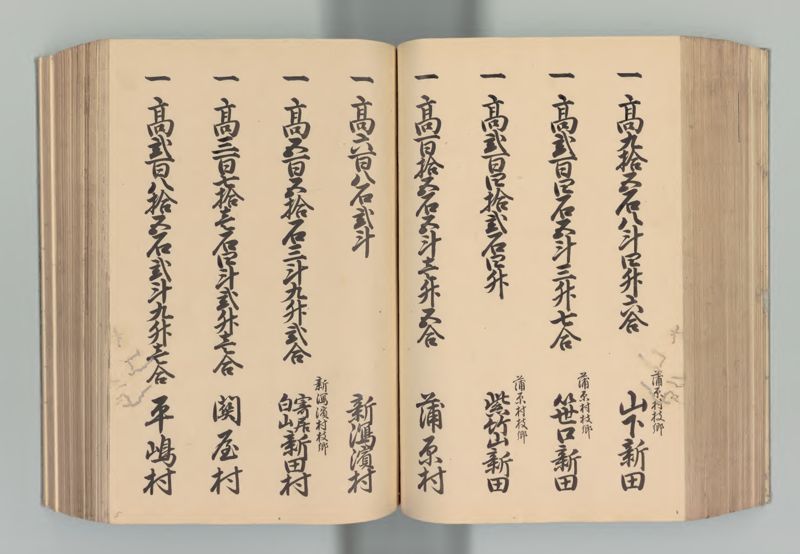 一高九拾五石八斗四升六合
蒲原村枝郷
山下新田
一高弐百四石五斗三升七合
蒲原村枝郷
笹口新田
一高弐百四拾弐石四升
蒲原村枝郷
紫竹山新田
一高百拾五石五斗壱升五合
蒲原村
一高六百八石弐斗
新潟濱村
一高五百五拾石三斗九升弐合
新潟濱村枝郷
寄居
白山
新田村
一高三百七拾壱石四斗弐升壱合
関屋村
一高弐百八拾五石弐斗九升壱合
平嶋村